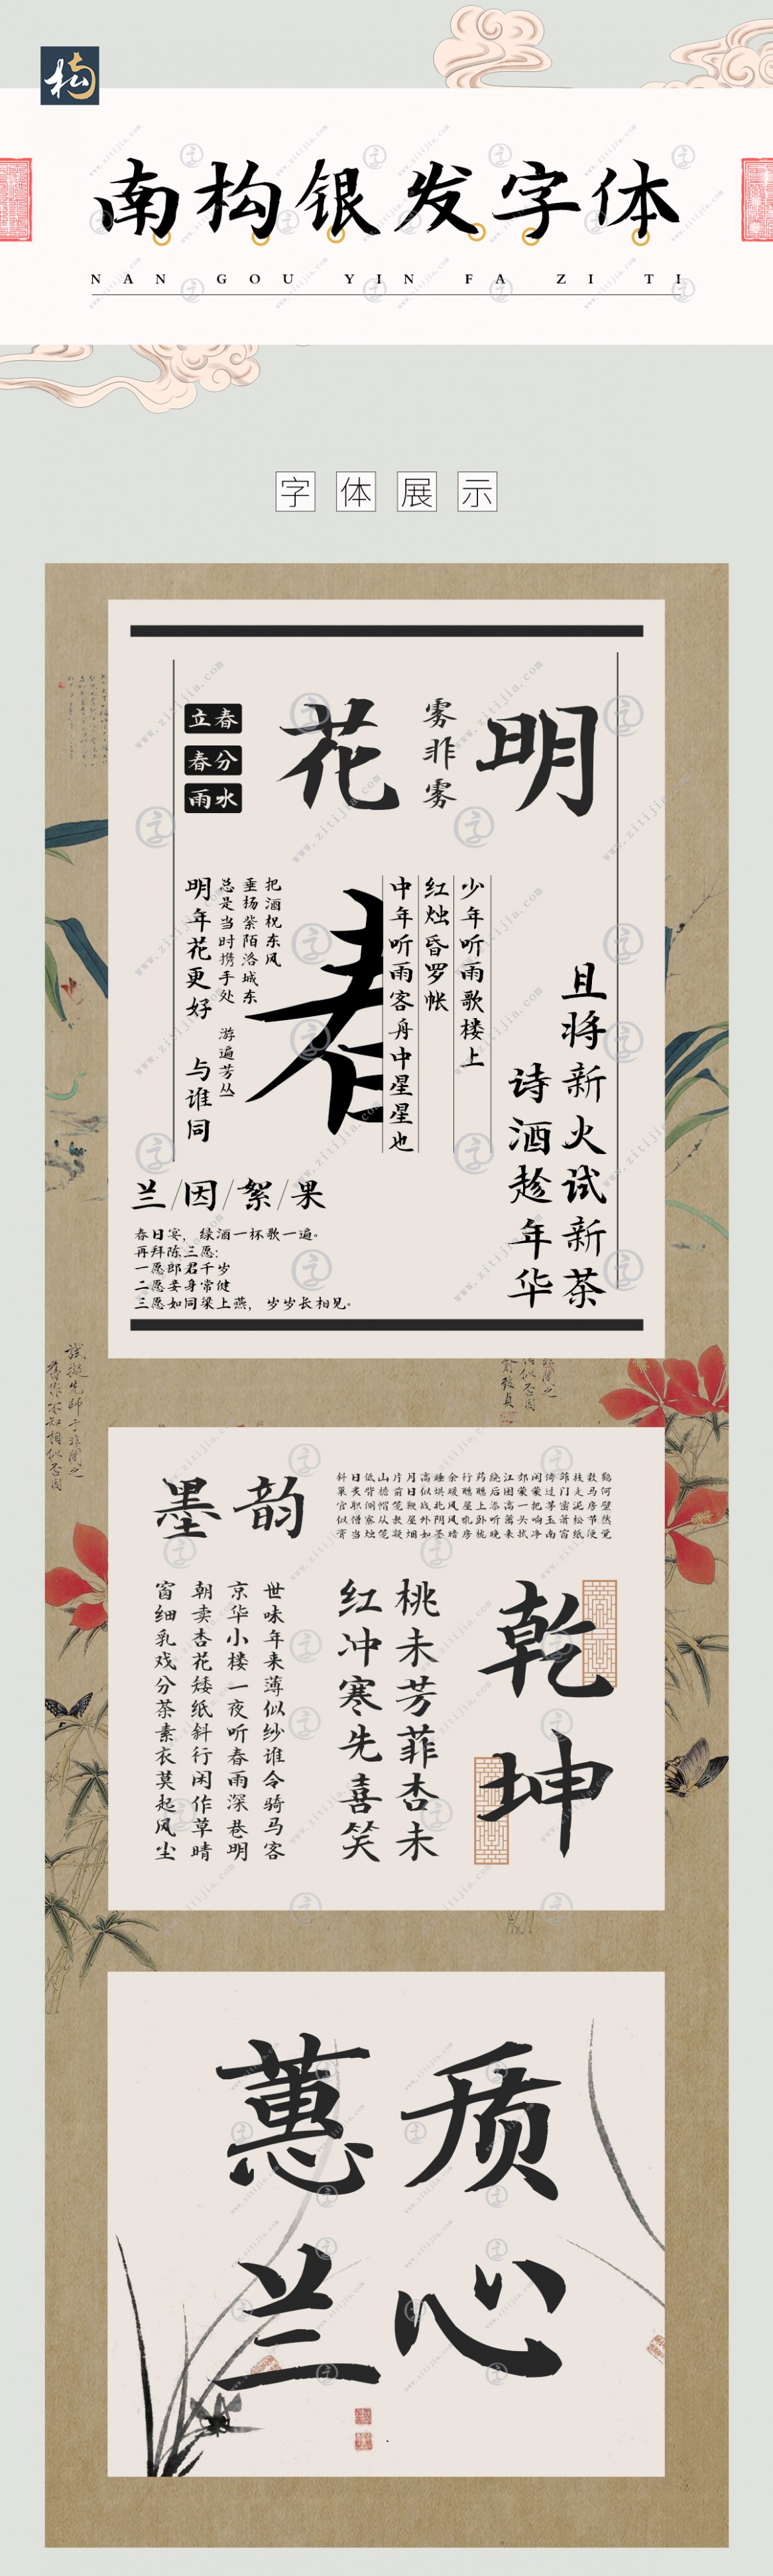 构
南构银发字体
NAN GOU YIN FA ZI TI
字体展示
明
雾非雾
花
立春
春分
雨水
且将新火试新茶
诗酒趁年华
少年听雨歌楼上
红烛昏罗帐
中年听雨客舟中星星也
春
把酒祝东风
垂扬紫陌洛城东
总是当时携手处 游遍芳丛
明年花更好 与谁同
兰/因/絮/果
春日宴，绿酒一杯歌一遍。
再拜陈三愿：
一愿郎君千岁
二愿妾身常健
三愿如同梁上燕，岁岁长相见。
墨韵
乾坤
桃未芳菲杏未
红冲寒先喜笑
世味年来薄似纱谁令骑马客
京华小楼一夜听春雨深巷明
朝卖杏花矮纸斜行闲作草晴
窗细乳戏分茶素衣莫起风尘
蕙质
兰心
www.zitijia.com